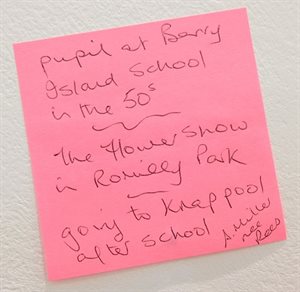 pupil at Barry
Island School
in the 50s
The Flower Show
in Romilly Park
going to Knap pool
after school
A. Miller
nee
Rees